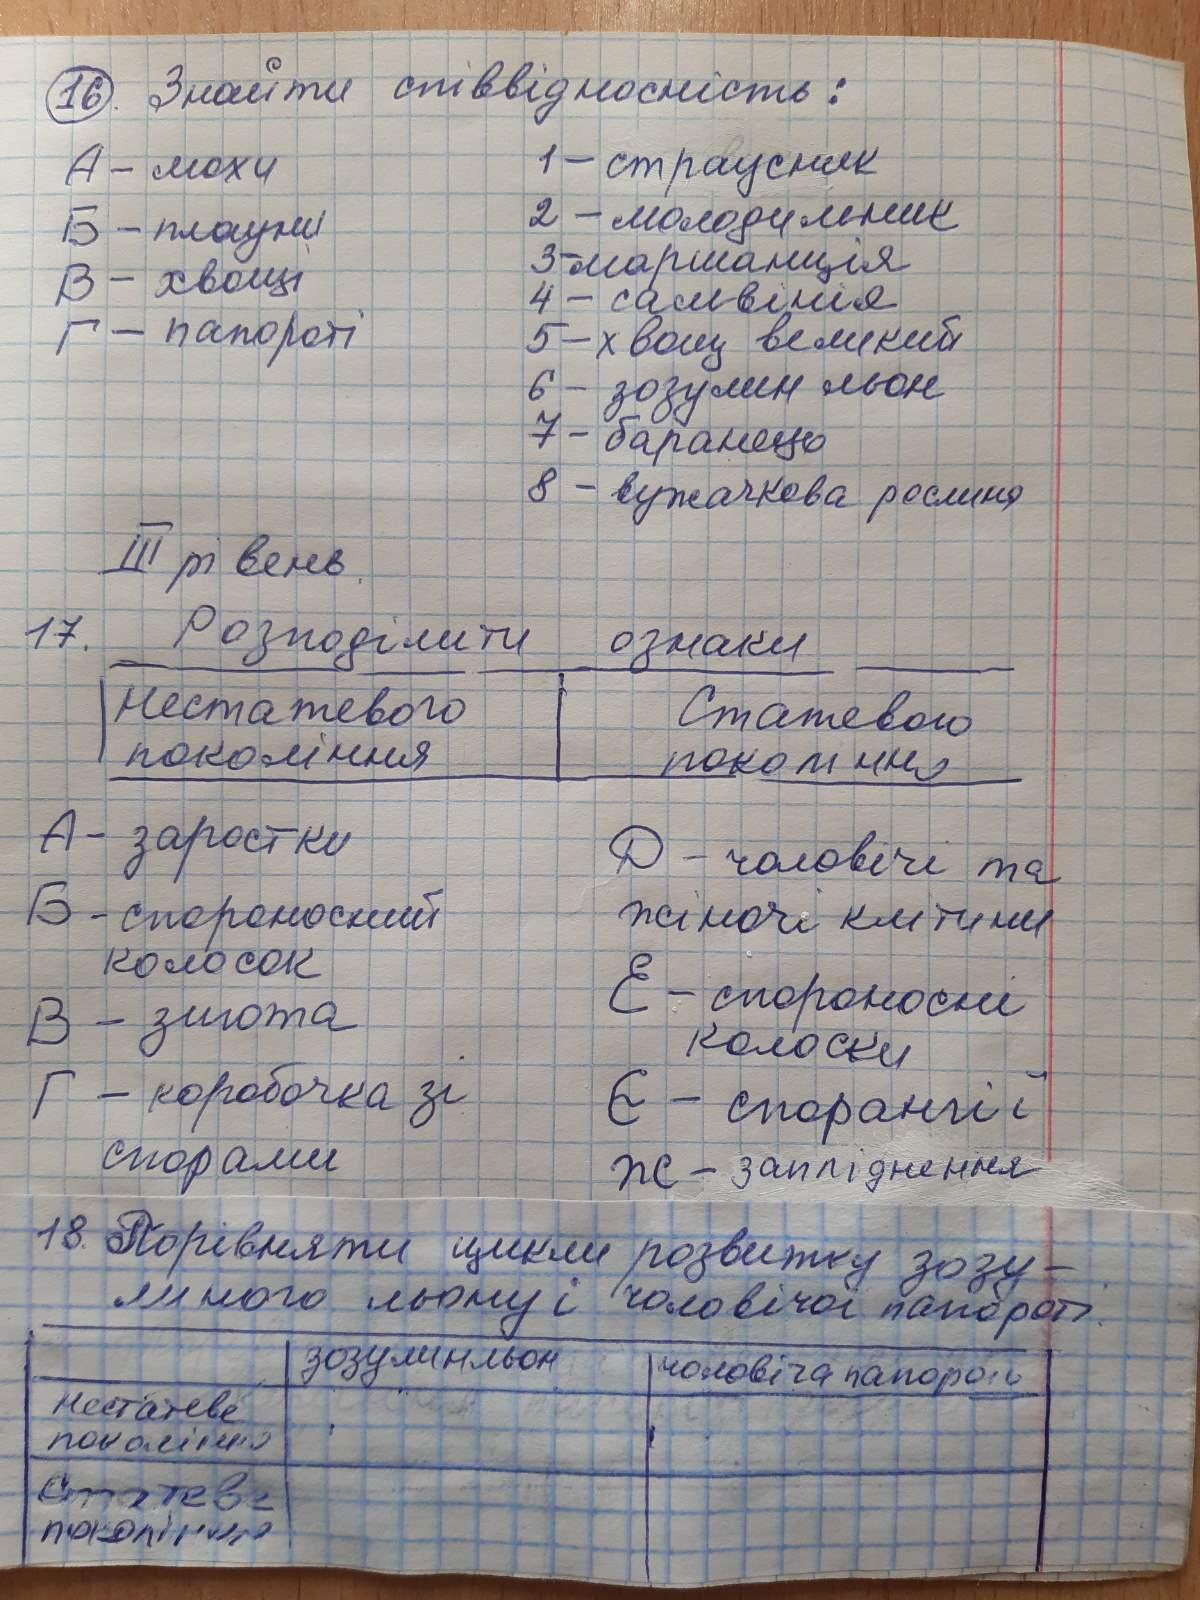 16. Знайти співвідносність:
А – мохи
Б – плауни
В – хвощі
Г – папороті
1 – страусник
2 – молодильник
3 – маршанція
4 – сальвінія
5 – хвощ великий
6 – зозулин льон
7 – баранець
8 – вужачкова рослина
III рівень.
17. Розподілити ознаки
Нестатевого покоління
Статевого покоління
А – заростки
Б – спороносний
колосок
В – зигота
Г – коробочка зі
спорами
Д – чоловічі та
жіночі клітини
Е – спороносні
колоски
Є – спорангії
Ж – запліднення
18. Порівняти цикли розвитку зозу-
линого льону і чоловічої папороті.
зозулин льон
чоловіча папороть
Нестатеве
покоління
Статеве
покоління